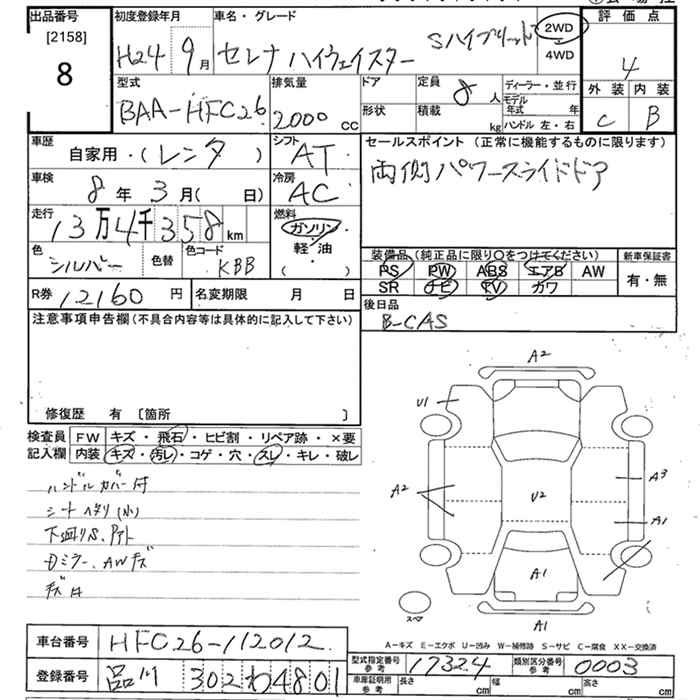 出品番号 初度登録年月 車名・グレード 評価点
[2158]
8
H24 9月 セレナ ハイウェイスター Sハイブリッド 2WD 4WD 4
型式 排気量 ドア 定員 8人 ディーラー・並行 外装 内装
BAA-HFC26 2000cc 形状 積載 kg モデル年式 年 ハンドル 左・右 C B
車歴 自家用・(レンタ) シフト AT セールスポイント (正常に機能するものに限ります)
両側パワースライドドア
車検 8年 3月 ( 日) 冷房 AC
走行 13万4千358km 燃料 ガソリン 軽・油 ( )
色 シルバー 色替 色コード KBB
装備品 (純正品に限り〇をつけてください) 新車保証書
PS PW ABS エアB AW 有・無
SR ナビ TV カワ
R券 12160円 名変期限 月 日 後日品
B-CAS
注意事項申告欄 (不具合内容等は具体的に記入して下さい)
修復歴 有 [箇所 ]
検査員記入欄 FW キズ・飛石・ヒビ割・リペア跡・×要
内装 キズ・汚レ・コゲ・穴・スレ・キレ・破レ
ハンドルカバー付
シートヘタリ(小)
下廻りS.
ミラー、AWキズ
A2
U1
A2 U2 A3
A1
A1
スペア A1
A-キズ E-エクボ U-凹み W-補修跡 S-サビ C-腐食 XX-交換済
車台番号 HFC26-112012
登録番号 品川 302 わ 4801
型式指定番号 参考 17324 類別区分番号 参考 0003
車庫証明用 参考 長さ cm 幅 cm 高さ cm